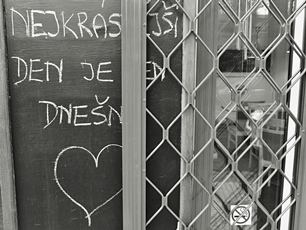 NEJKRAS JŠÍ
DEN JE EN
DNEŠN